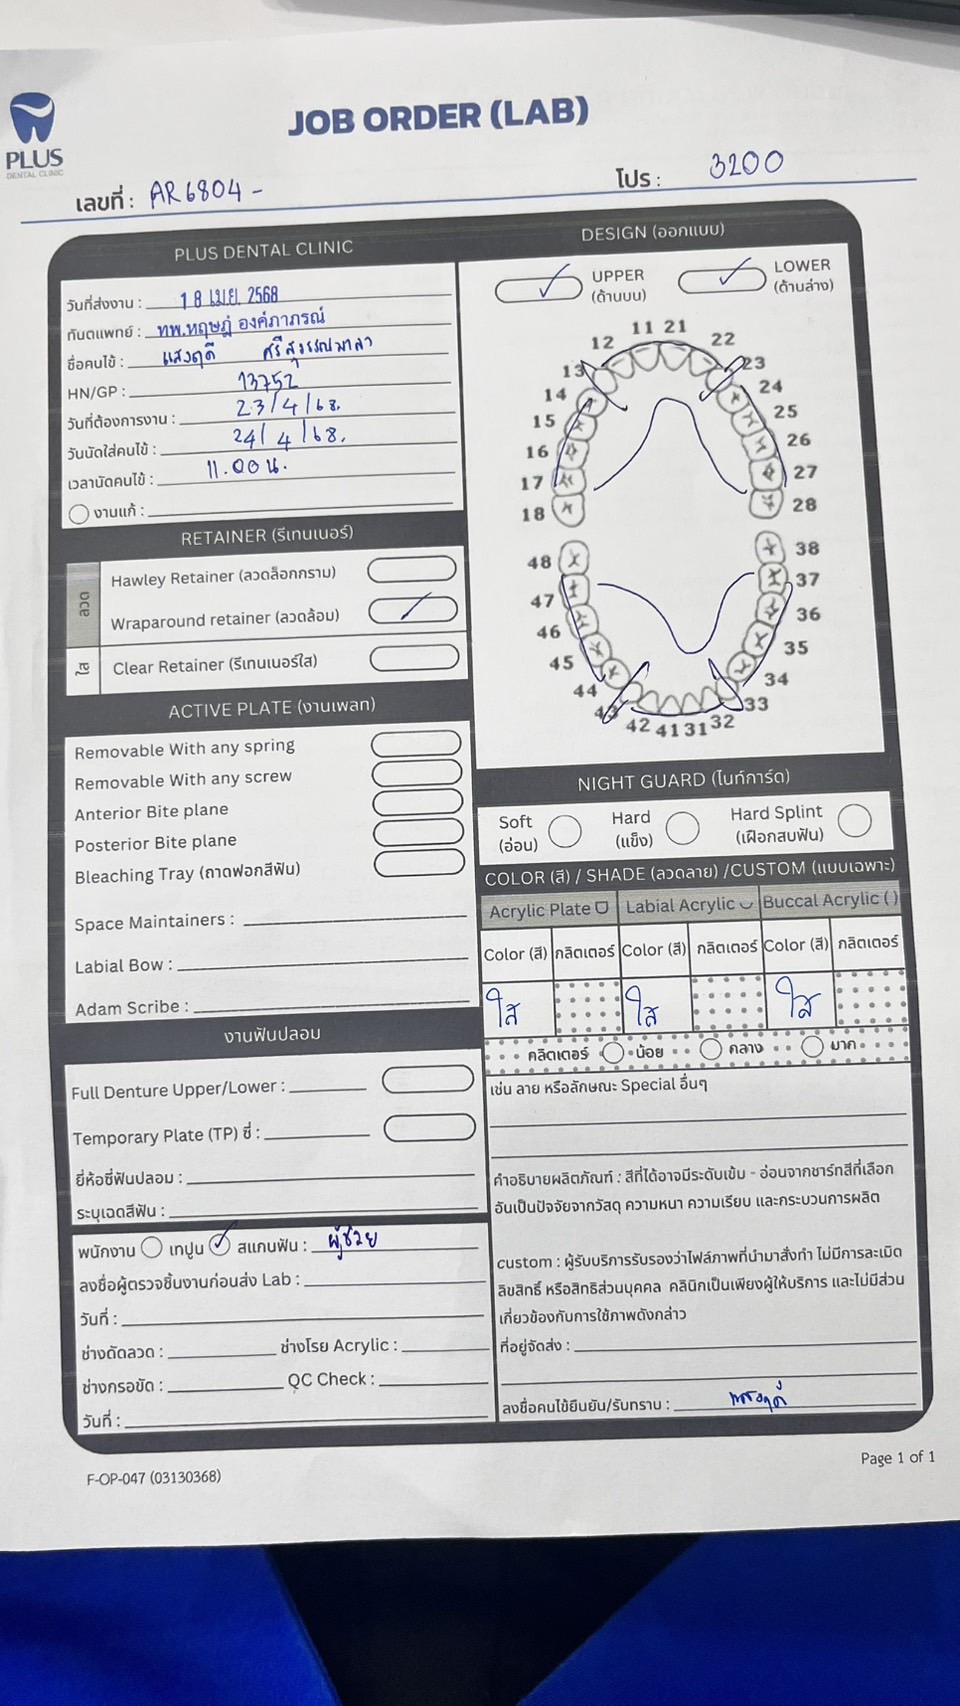 PLUS
DENTAL CLINIC
JOB ORDER (LAB)
เลขที่ : AR6804 -
โปร : 3200
PLUS DENTAL CLINIC
วันที่ส่งงาน : 18 เม.ย. 2568
ทันตแพทย์ : ทพ.หฤษฎ์ องค์ภาภรณ์
ชื่อคนไข้ : แสงฤดี ศรีสุวรรณมาลา
HN/GP : 13752
วันที่ต้องการงาน : 23/4/68.
วันนัดใส่คนไข้ : 24/4/68.
เวลานัดคนไข้ : 11.00 น.
งานแก้ :
RETAINER (รีเทนเนอร์)
ลวด
Hawley Retainer (ลวดล็อกกราม)
Wraparound retainer (ลวดล้อม)
ใส
Clear Retainer (รีเทนเนอร์ใส)
ACTIVE PLATE (งานเพลท)
Removable With any spring
Removable With any screw
Anterior Bite plane
Posterior Bite plane
Bleaching Tray (ถาดฟอกสีฟัน)
Space Maintainers :
Labial Bow :
Adam Scribe :
งานฟันปลอม
Full Denture Upper/Lower :
Temporary Plate (TP) ซี่ :
ยี่ห้อซี่ฟันปลอม :
ระบุเฉดสีฟัน :
พนักงาน เทปูน สแกนฟัน : ผู้ช่วย
ลงชื่อผู้ตรวจชิ้นงานก่อนส่ง Lab :
วันที่ :
ช่างดัดลวด : ช่างโรย Acrylic :
ช่างกรอขัด : QC Check :
วันที่ :
DESIGN (ออกแบบ)
UPPER
(ด้านบน)
LOWER
(ด้านล่าง)
11 21
12 22
13 23
14 24
15 25
16 26
17 27
18 28
48 38
47 37
46 36
45 35
44 34
43 33
42 41 31 32
NIGHT GUARD (ไนท์การ์ด)
Soft
(อ่อน)
Hard
(แข็ง)
Hard Splint
(เฝือกสบฟัน)
COLOR (สี) / SHADE (ลวดลาย) /CUSTOM (แบบเฉพาะ)
Acrylic Plate Labial Acrylic Buccal Acrylic ( )
Color (สี) กลิตเตอร์ Color (สี) กลิตเตอร์ Color (สี) กลิตเตอร์
ใส ใส ใส
กลิตเตอร์ น้อย กลาง มาก
เช่น ลาย หรือลักษณะ Special อื่นๆ
คำอธิบายผลิตภัณฑ์ : สีที่ได้อาจมีระดับเข้ม - อ่อนจากชาร์ทสีที่เลือก
อันเป็นปัจจัยจากวัสดุ ความหนา ความเรียบ และกระบวนการผลิต
custom : ผู้รับบริการรับรองว่าไฟล์ภาพที่นำมาสั่งทำ ไม่มีการละเมิด
ลิขสิทธิ์ หรือสิทธิส่วนบุคคล คลินิกเป็นเพียงผู้ให้บริการ และไม่มีส่วน
เกี่ยวข้องกับการใช้ภาพดังกล่าว
ที่อยู่จัดส่ง :
ลงชื่อคนไข้ยืนยัน/รับทราบ : แสงฤดี
F-OP-047 (03130368)
Page 1 of 1